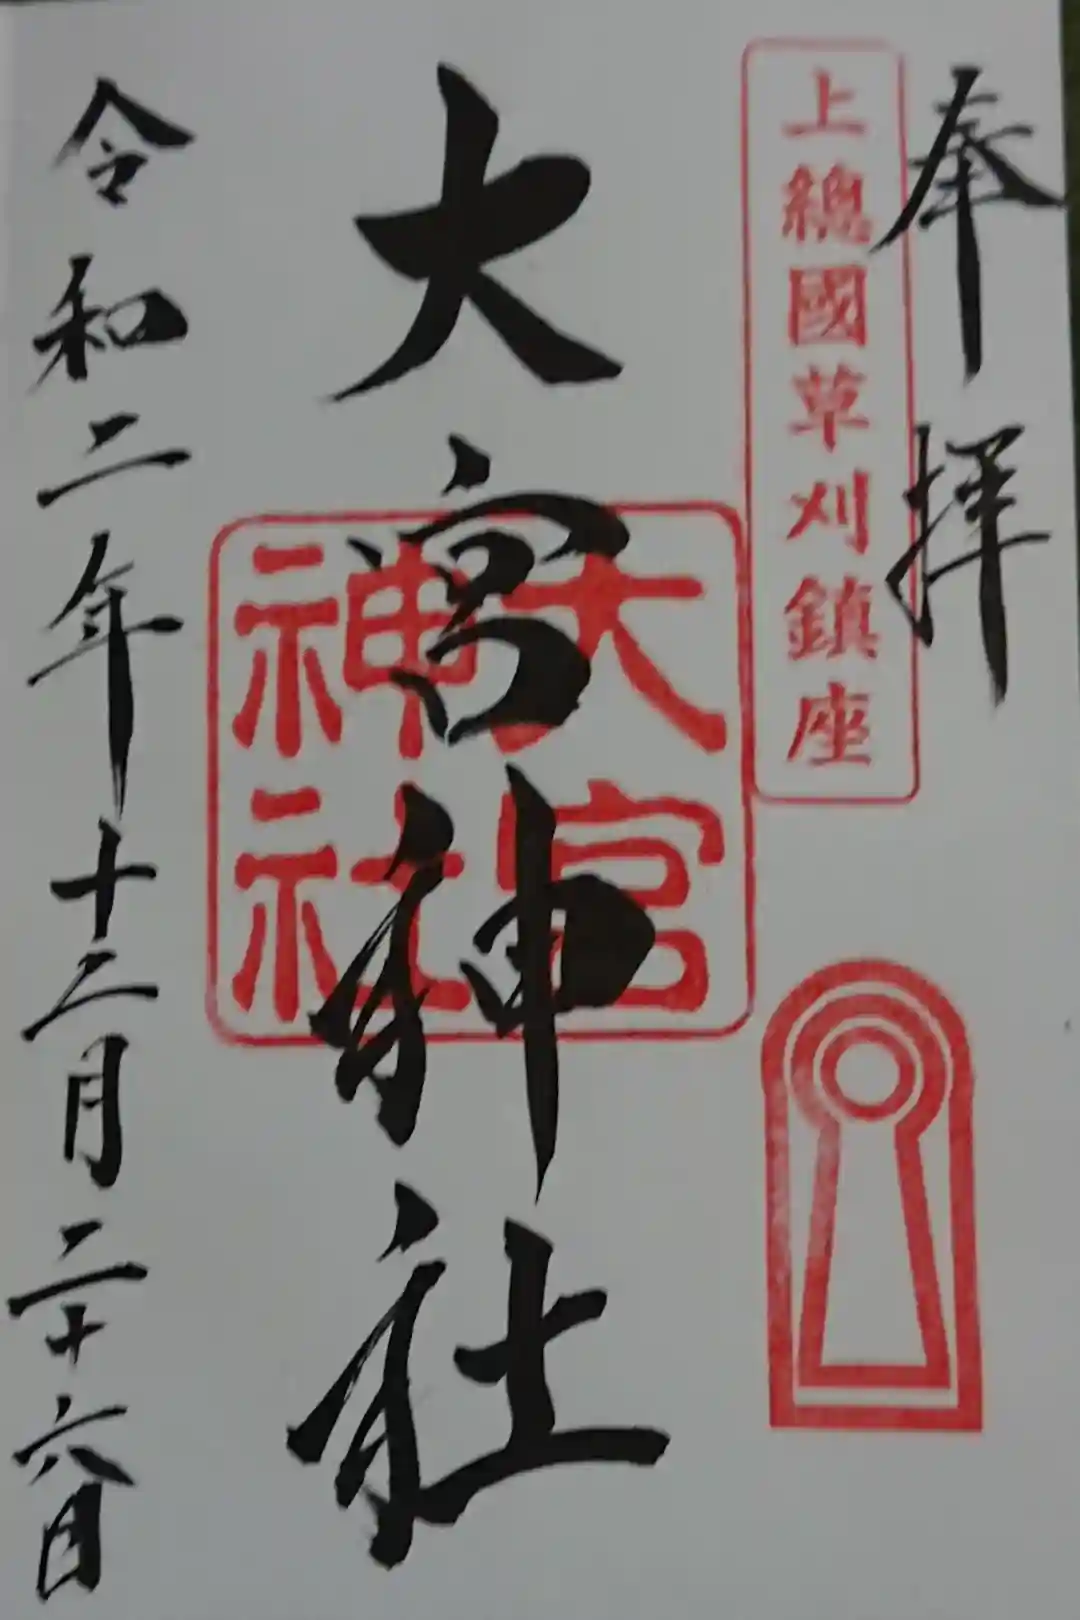 奉拝
上總國草刈鎮座
大宮神社
大宮
神社
令和二年十二月二十六日